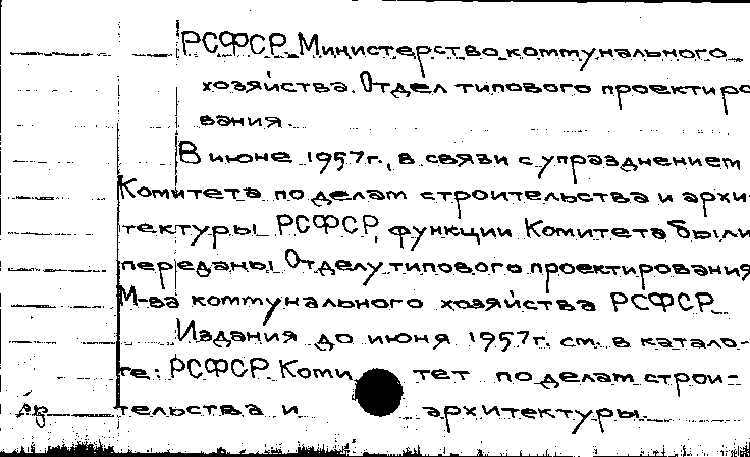 РСФСР. Министерство коммунального
хозяйства. Отдел типового проектиро
вания.
В июне 1957г., в связи с упразднением
Комитета по делам строительства и архи-
тектуры РСФСР, функции Комитета были
переданы Отделу типового проектирования
М-ва коммунального хозяйства РСФСР.
Издания до июня 1957г. см. в катало-
ге: РСФСР. Коми тет по делам строи-
тельства и архитектуры.